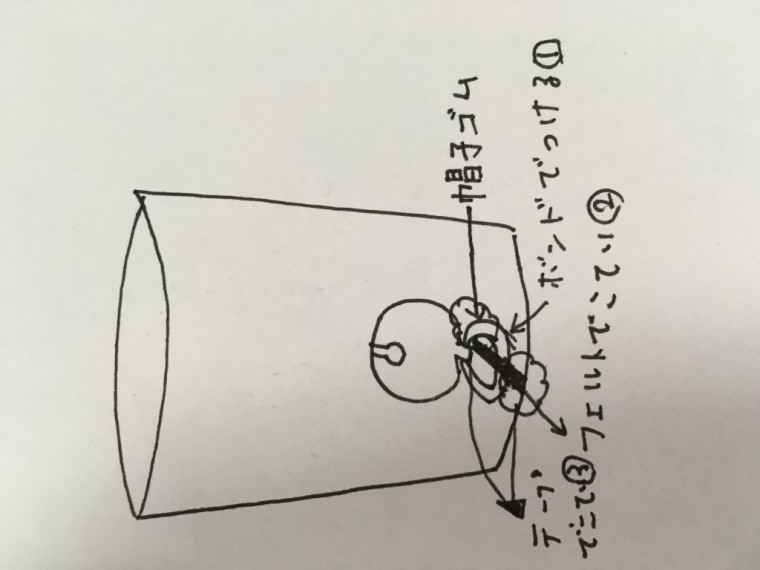 帽子ゴム
①
ボンドでつける
②
フェルトでこてい
テープ
でこてい③